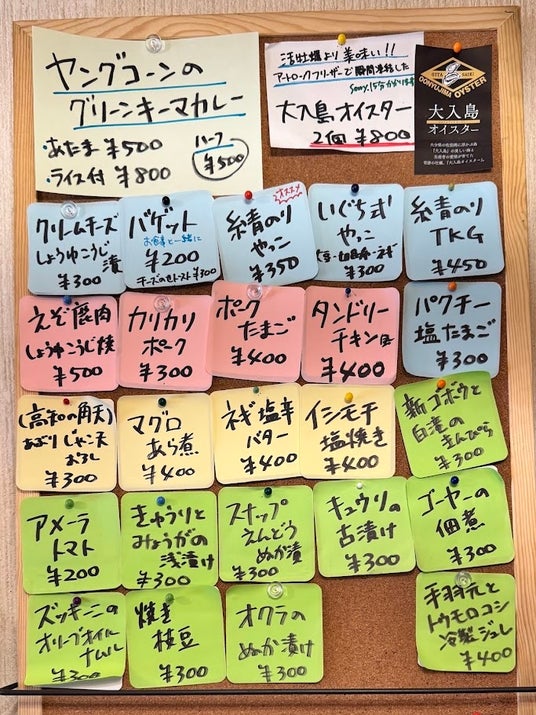 ヤングコーンの
グリーンキーマカレー
・あたま ¥500
・ライス付 ¥800
ハーフ
¥500
活牡蠣より美味い!!
アートロックフリーザーで瞬間凍結した
大入島オイスター
2個 ¥800
OITA SAIKI
OONYUJIMA OYSTER
大入島
オイスター
クリームチーズ
しょうゆこうじ
漬
¥300
バゲット
お食事と一緒に
¥200
チーズのせトースト ¥300
オススメ
糸青のり
やっこ
¥350
いぐち式
やっこ
¥300
糸青のり
TKG
¥450
えぞ鹿肉
しょうゆこうじ焼
¥500
カリカリ
ポーク
¥300
ポーク
たまご
¥400
タンドリー
チキン風
¥400
パクチー
塩たまご
¥300
(高知の角天)
あぶりじゃこ天
おろし
¥300
マグロ
あら煮
¥400
ネギ塩辛
バター
¥400
イシモチ
塩焼き
¥400
新ゴボウと
白滝のきんぴら
¥300
アメーラ
トマト
¥200
きゅうりと
みょうがの
浅漬け
¥300
スナップ
えんどう
ぬか漬
¥300
キュウリの
古漬け
¥300
ゴーヤーの
佃煮
¥300
ズッキーニの
オリーブオイル
ナムル
¥300
焼き
枝豆
¥300
オクラの
ぬか漬け
¥300
手羽元と
トウモロコシ
冷製ジュレ
¥400